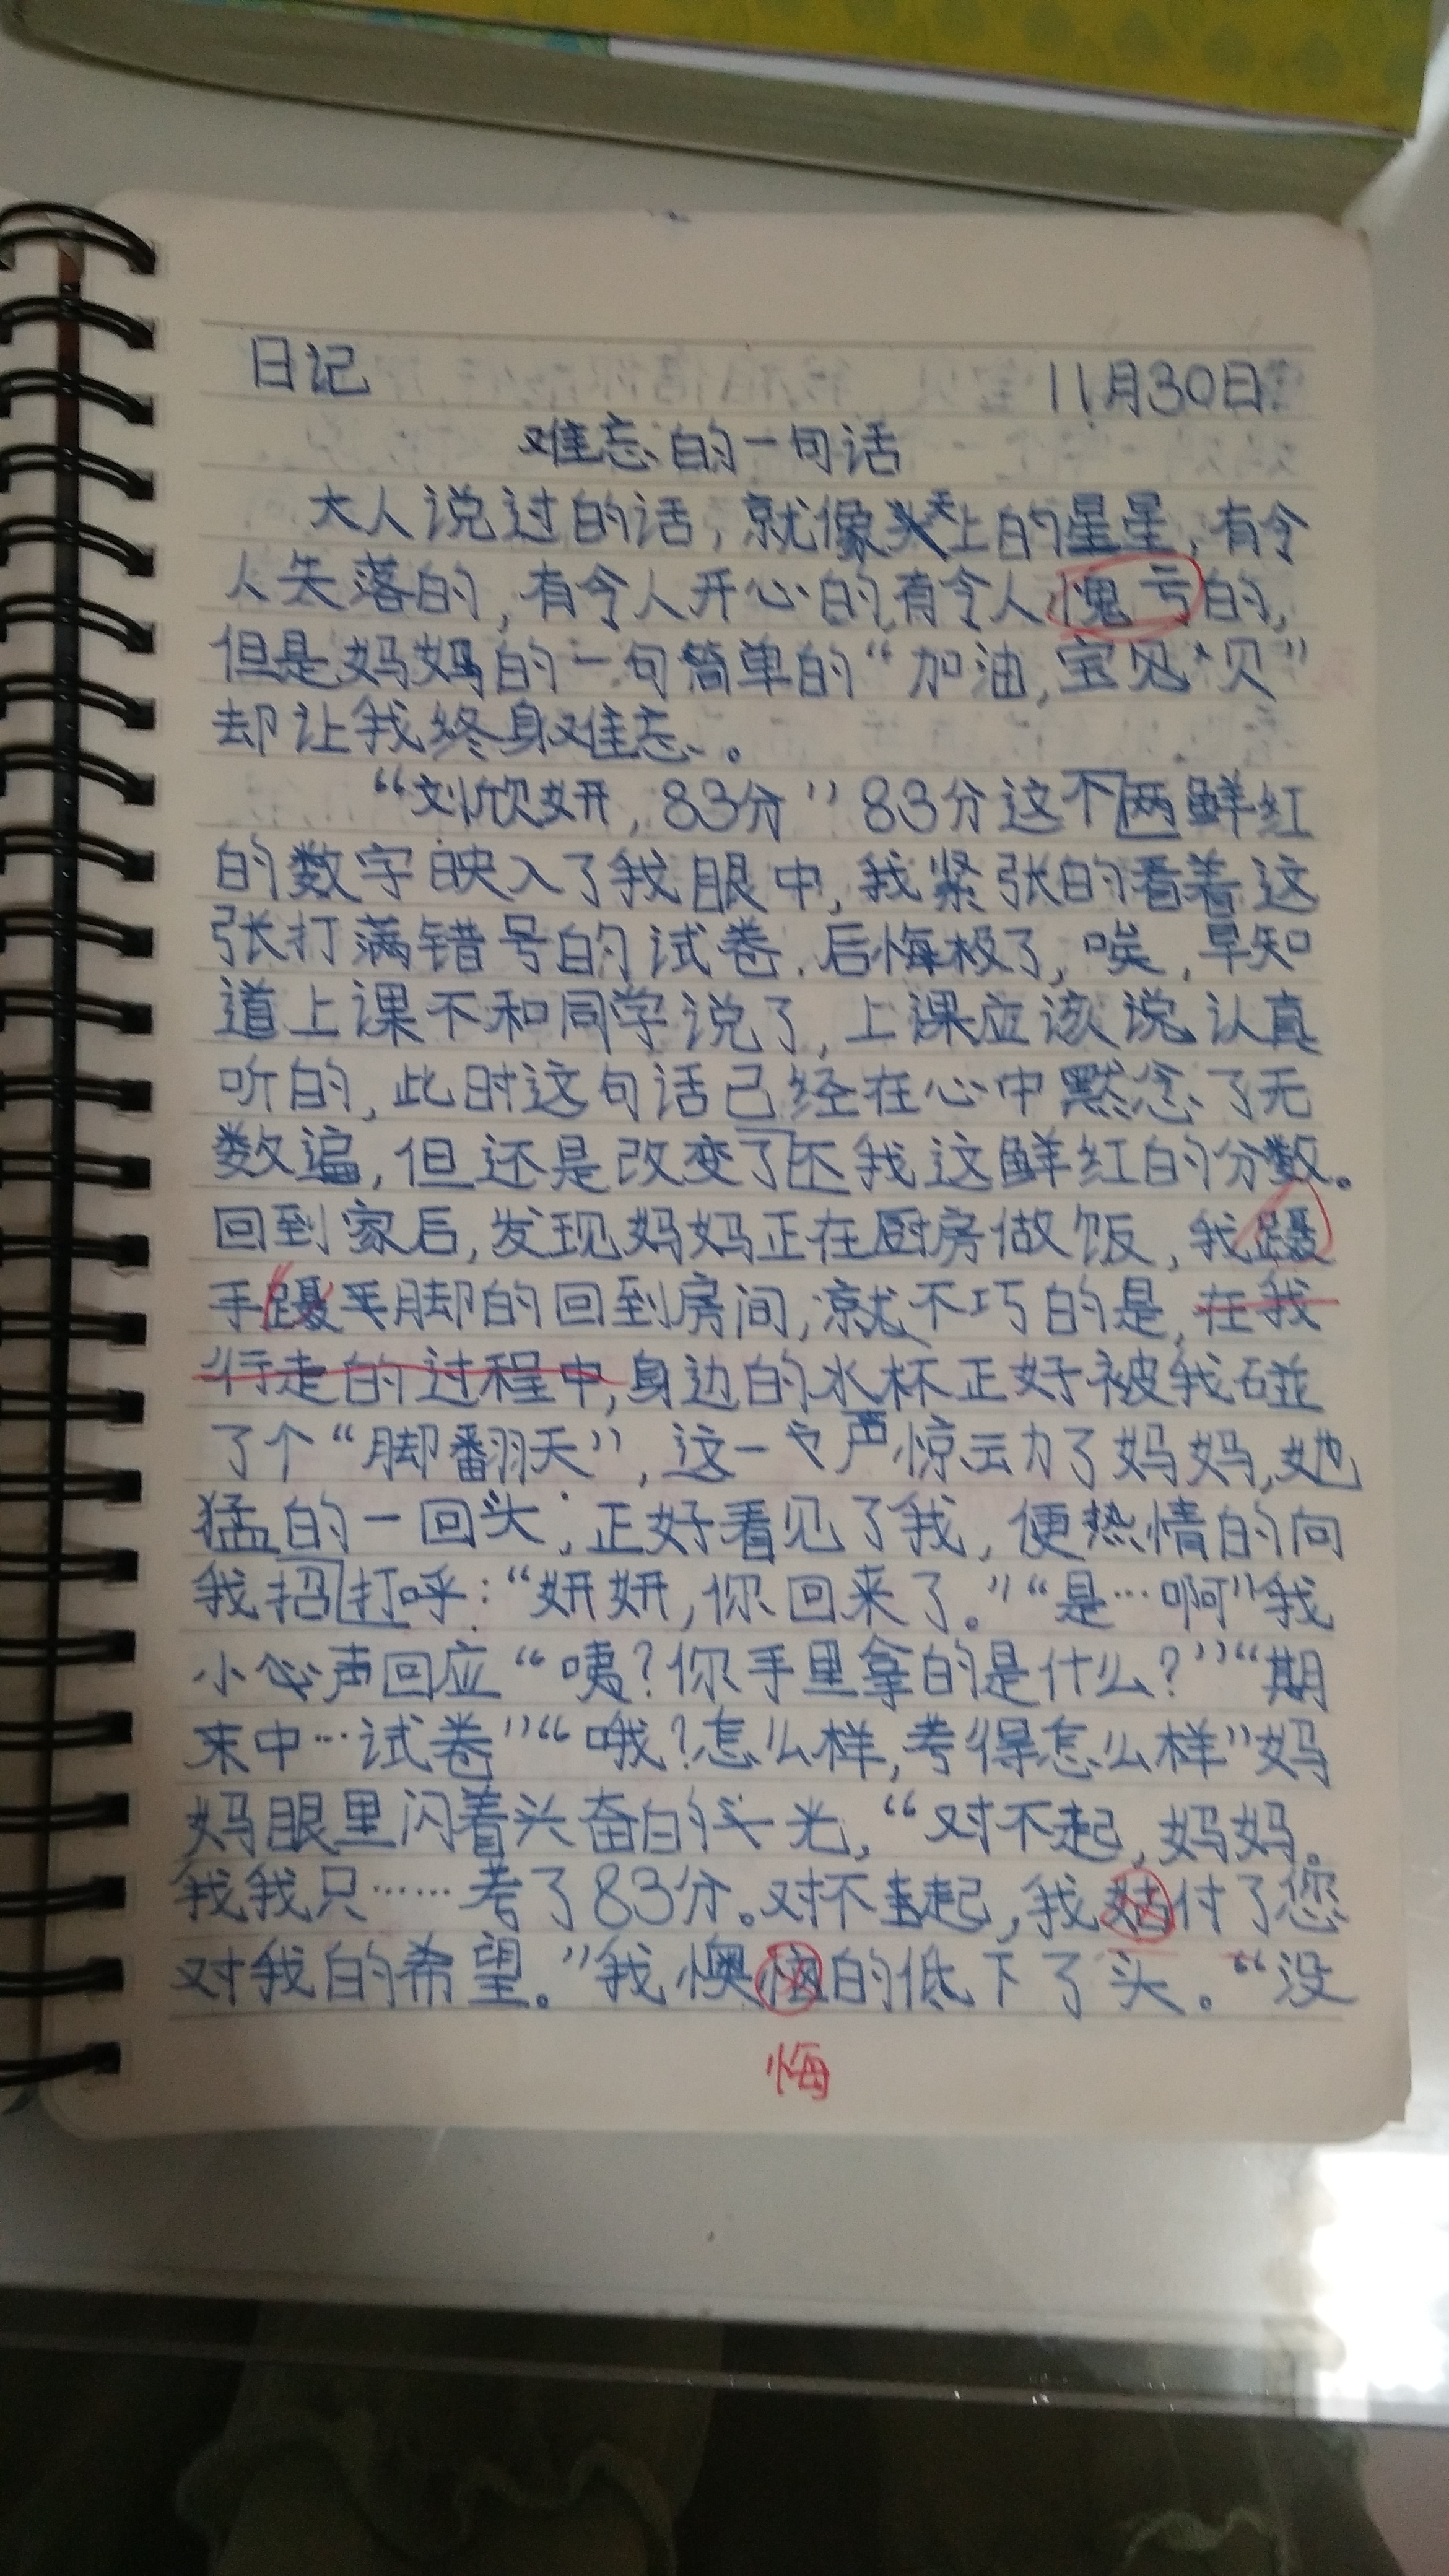 日记 11月30日
难忘的一句话
大人说过的话，就像天上的星星，有令
人失落的，有令人开心的,有令人愧亏的,
但是妈妈的一句简单的“加油,宝贝”
却让我终身难忘。
“刘欣妍，83分”83分这个两鲜红
的数字映入了我眼中，我紧张的看着这
张打满错号的试卷.后悔极了，唉，早知
道上课不和同学说了，上课应该说认真
听的，此时这句话已经在心中默念了无
数遍，但还是改变了不我这鲜红的分数。
回到家后，发现妈妈正在厨房做饭，我蹑
手蹑脚的回到房间，就不巧的是，在我
行走的过程中，身边的水杯正好被我碰
了个“脚翻天”，这一声惊动了妈妈，她
猛的一回头，正好看见了我，便热情的向
我招打呼：“妍妍，你回来了。”“是…啊”我
小心声回应“咦？你手里拿的是什么？”“期
末中…试卷”“哦？怎么样，考得怎么样”妈
妈眼里闪着兴奋的光，“对不起，妈妈。
我我只……考了83分。对不起，我付了您
对我的希望。”我懊的低下了头。“没
悔